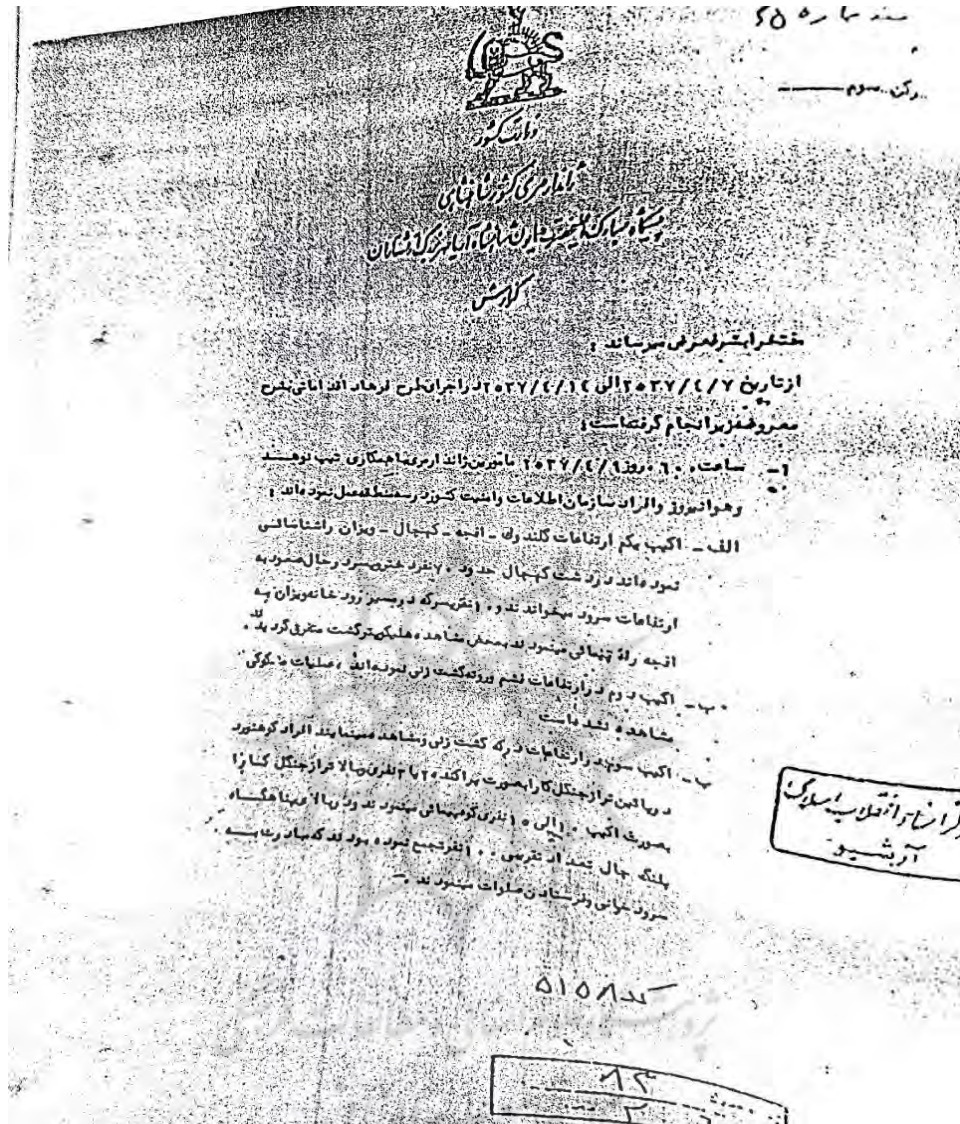 سند شماره ۶۵
رکن سوم
وزارت کشور
ژاندارمری کشور شاهنشاهی
پیشگاه مبارک اعلیحضرت همایون شاهنشاه آریامهر بزرگ ارتشتاران
گزارش
مفتخرا بشرفعرض میرساند :
از تاریخ ۲۵۳۷/۴/۷ الی ۲۵۳۷/۴/۱۴ در اجرای طرح فرهاد اقداماتی بشرح
معروضه زیر انجام گرفته است :
۱- ساعت ۰۶۰۰ روز ۲۵۳۷/۴/۹ مامورین ژاندارمری با همکاری تیپ نوهد
و هوانیروز و افراد سازمان اطلاعات و امنیت کشور در منطقه عمل نموده اند :
الف - اکیپ یکم ارتفاعات گلندوک - افجه - کهجال - ویزان را شناسائی
نموده اند در دشت کهجال حدود ۷۰ نفر دختر و پسر در حال صعود به
ارتفاعات سرود میخواندند و ۱۰ نفر پسر که در مسیر رودخانه ویزان به
افجه راه پیمائی مینمودند بمحض مشاهده هلیکوپتر گشت متفرق گردیدند .
ب - اکیپ دوم در ارتفاعات فشم و روته گشت زنی نموده اند ، عملیات مشکوکی
مشاهده نشده است
پ - اکیپ سوم در ارتفاعات درکه گشت زنی و مشاهده مینمایند افراد کوهنورد
در پائین تر از جنگل کارا بصورت پراکنده ۲ یا ۳ نفری و بالاتر از جنگل کارا
بصورت اکیپ ۱۰ الی ۱۵ نفری کوه پیمائی مینمودند و در بالای پناهگاه
پلنگ چال تعداد تقریبی ۱۰۰ نفر تجمع نموده بودند که مبادرت به
سرود خوانی و فرستادن صلوات مینمودند .
مرکز اسناد انقلاب اسلامی
آرشیو
کد ۵۱۵۸